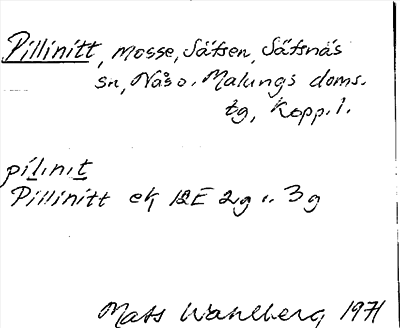 Pillinitt, mosse, Säfsen, Säfsnäs
sn, Nås o. Malungs doms.
tg, Kopp. l.
pílınıt
Pillinitt ek 12E 2g o. 3g
Mats Wahlberg 1971